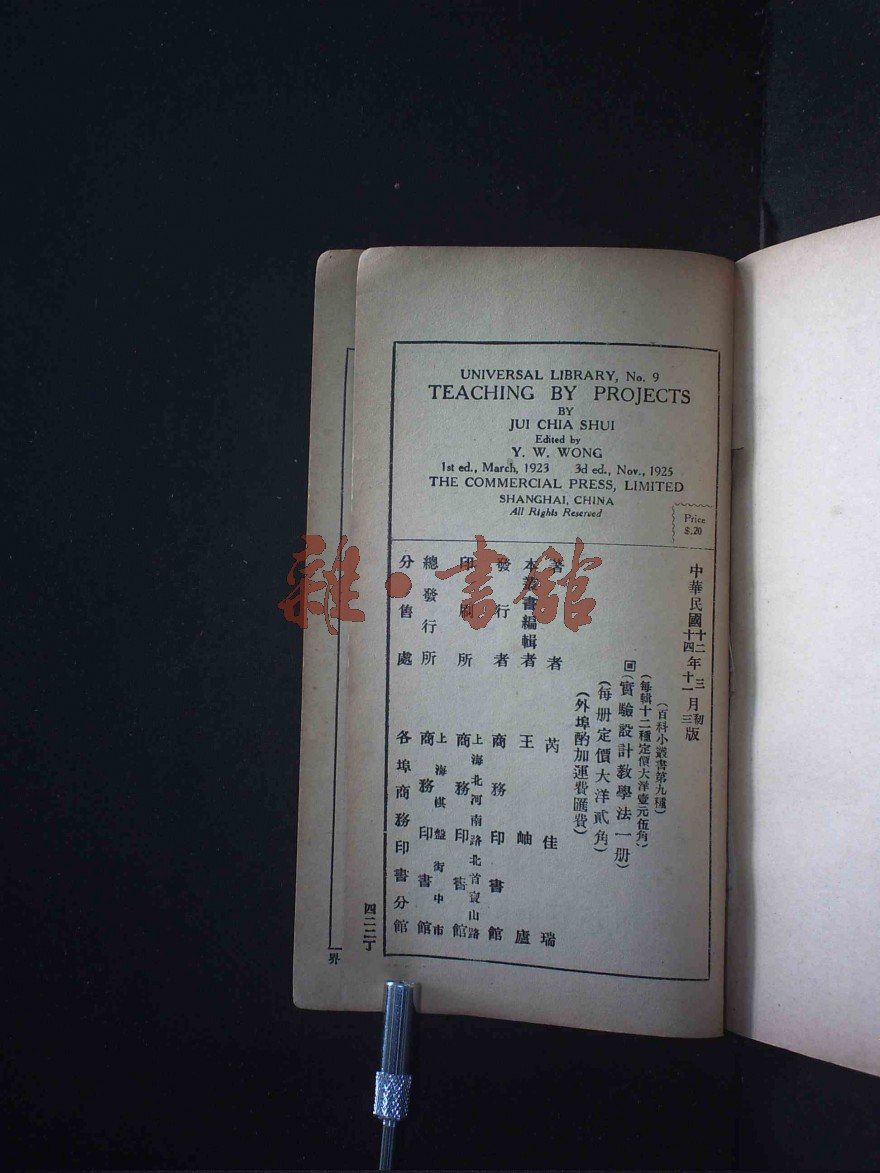 UNIVERSAL LIBRARY, No. 9
TEACHING BY PROJECTS
BY
JUI CHIA SHUI
Edited by
Y. W. WONG
1st ed., March, 1923 3d ed., Nov., 1925
THE COMMERCIAL PRESS, LIMITED
SHANGHAI, CHINA
All Rights Reserved
Price
$.20
中華民國十二年三月初版
十四年十一月三版
(百科小叢書第九種)
(每輯十二種定價大洋壹元伍角)
(實驗設計教學法一册)
(每册定價大洋貳角)
(外埠酌加運費匯費)
著者 芮佳瑞
本叢書編輯者 王岫廬
發行者 商務印書館
印刷所 上海北河南路北首寶山路 商務印書館
總發行所 上海棋盤街中市 商務印書館
分售處 各埠商務印書分館
四二二丁
界
雜·書館